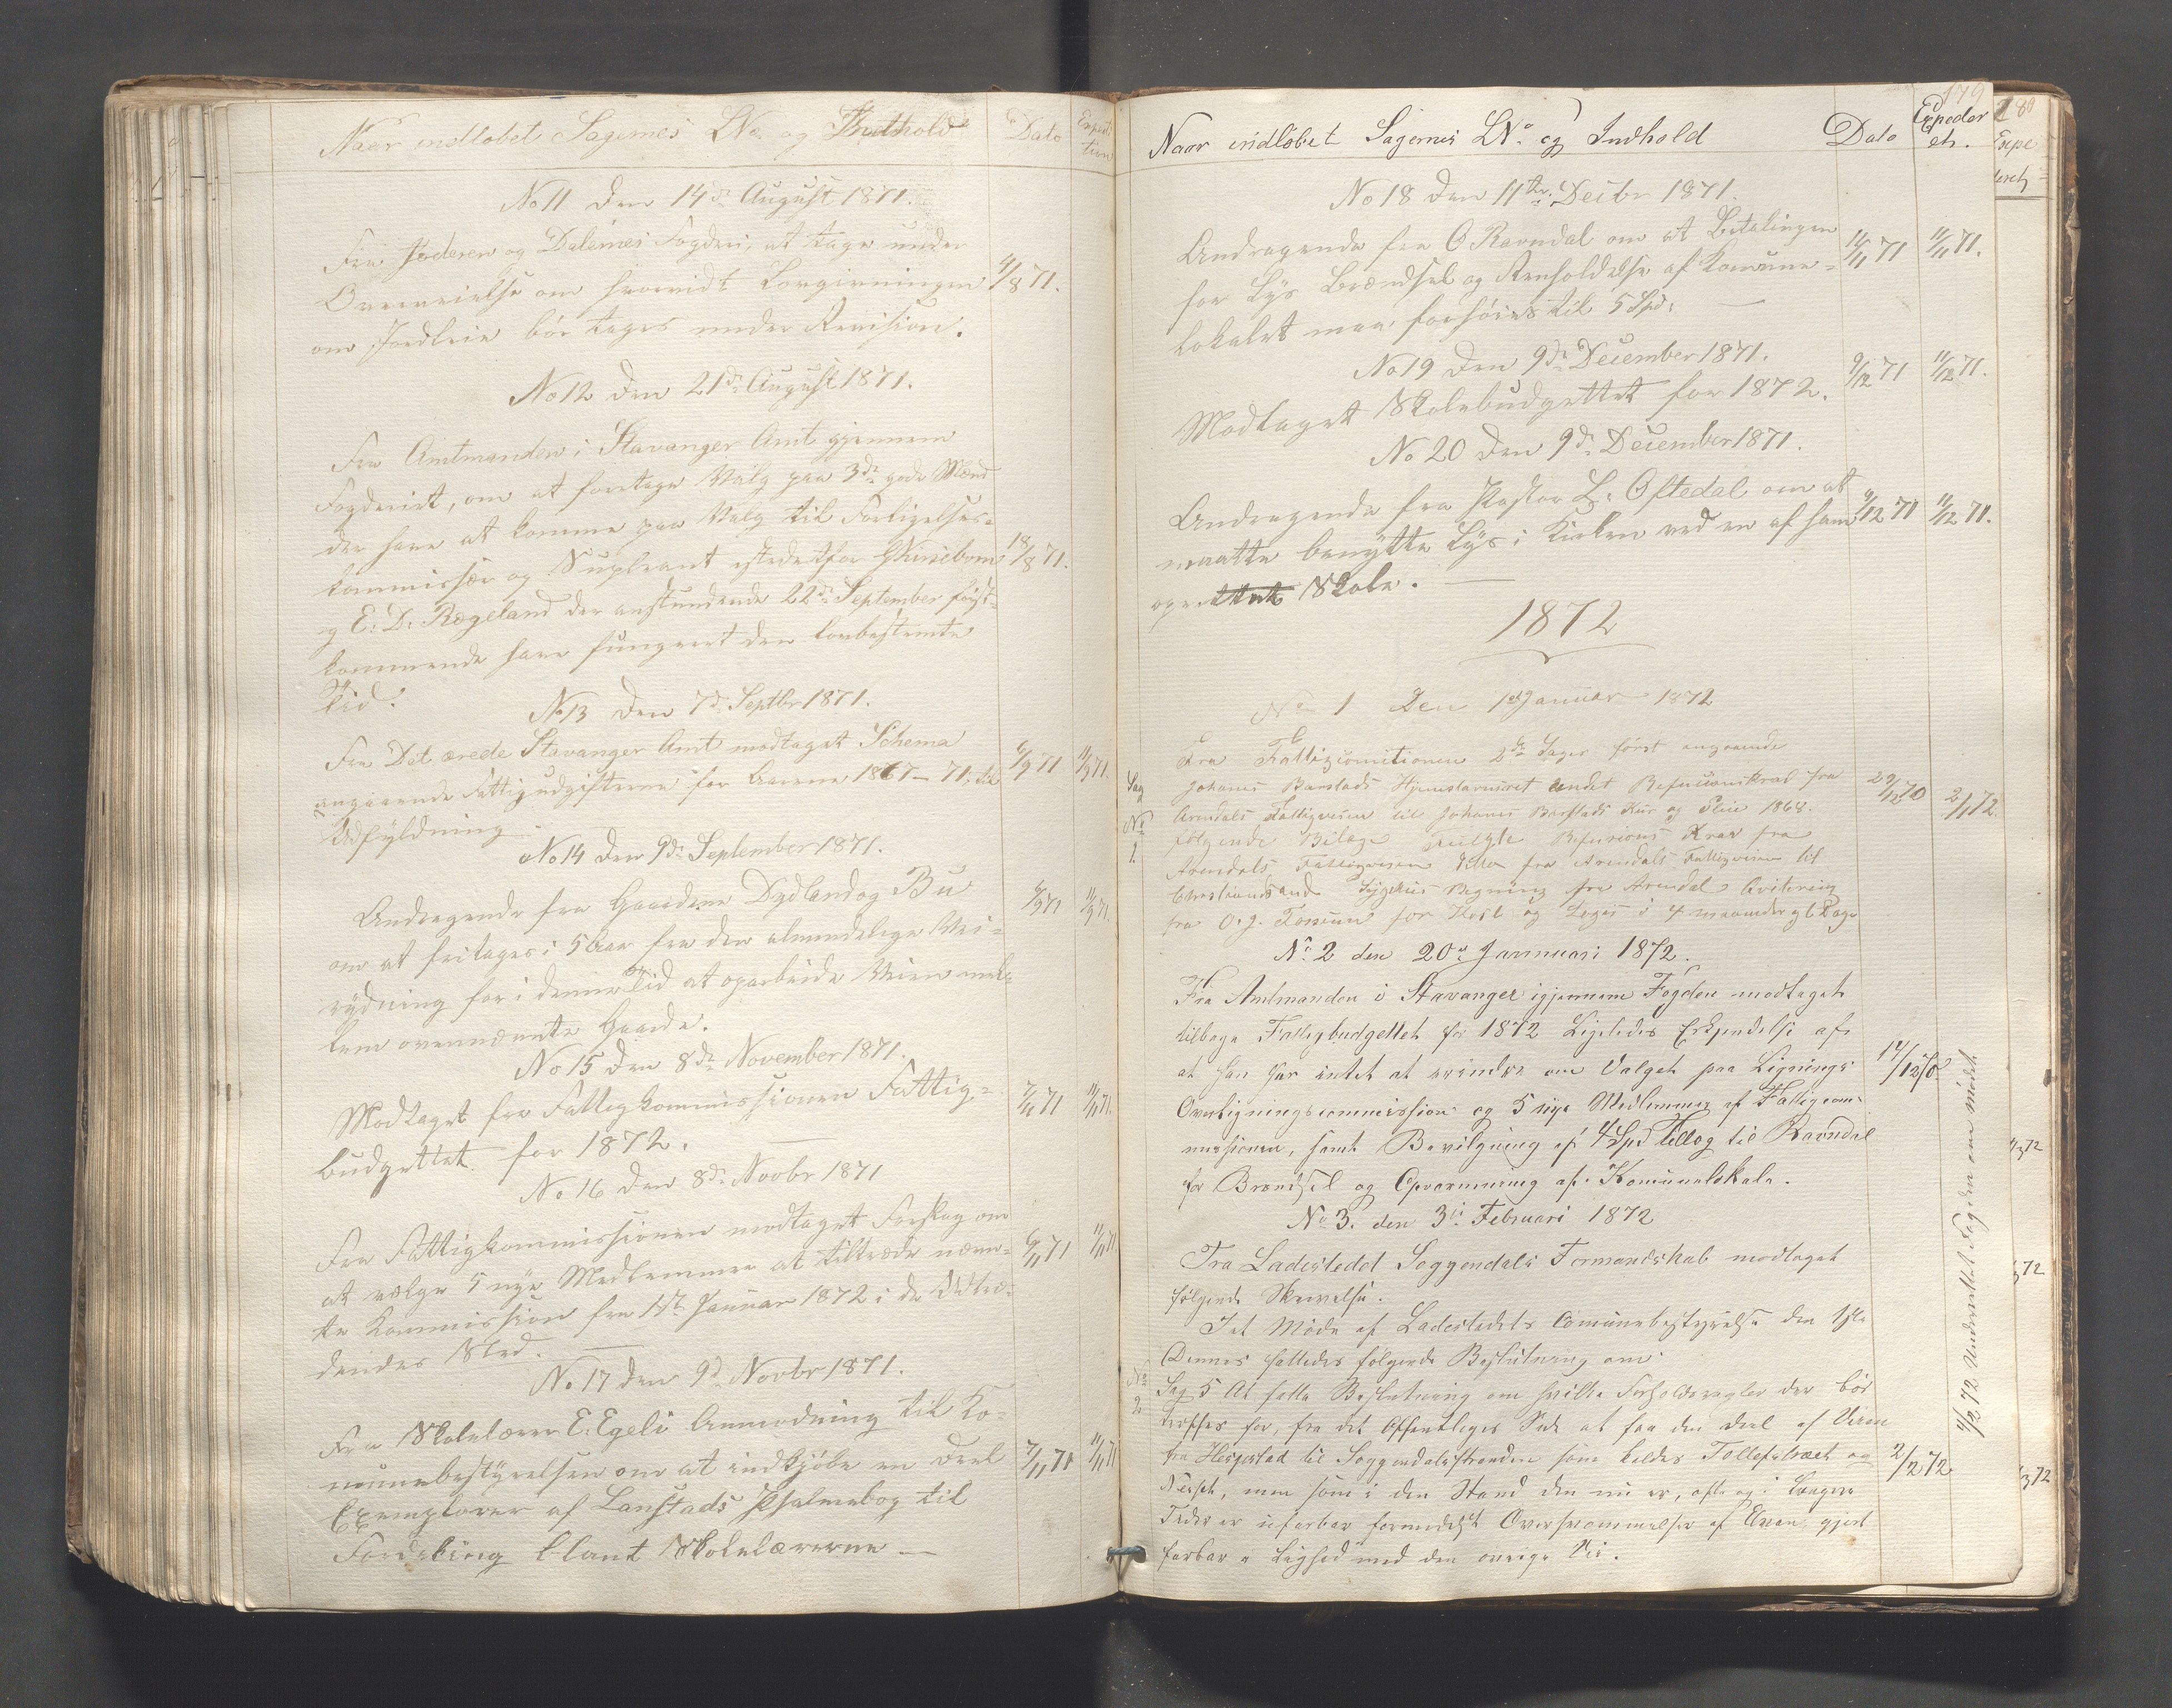 Naar indløbet Sagernes LNo og Indhold
Dato
Expedi
tion
No 11 den 14de August 1871.
Fra Jæderen og Dalernes Fogderi, at tage under
Overveielse om hvorvidt Lovgivningen
om Jordleie bør tages under Revision.
4/8 71.
No 12 den 21de August 1871.
Fra Amtmanden i Stavanger Amt gjennem
Fogderiet, om at foretage Valg paa 3de gode Mænd
der have at komme paa Valg til Forligelses-
kommissær og Supleant istedetfor
og E. D. Rægeland der anstundende 22de September først-
kommende have fungeret den lovbestemte
Tid.
18/8 71.
No 13 den 7de Septbr 1871.
Fra Det ærede Stavanger Amt modtaget Schema
angaaende Fattigudgifterne for Aarene 1867-71 til
Udfyldning
6/9 71
11/9 71.
No 14 den 9de September 1871.
Andragende fra Gaardene Dydland og Bu
om at fritages i 5 Aar fra den almindelige Vei-
rydning for i denne Tid at oparbeide Veien mel-
lem ovennævnte Gaarde.
9/9 71
11/9 71.
No 15 den 8de November 1871.
Modtaget fra Fattigkommissionen Fattig-
budgettet for 1872.
7/11 71
11/11 71.
No 16 den 8de Novbr 1871
Fra Fattigkommissionen modtaget Forslag om
at vælge 5 nye Medlemmer at tiltræde nævn-
te Kommission fra 1ste Januar 1872 i de Udtræ-
dendes Sted.
6/11 71
11/11 71.
No 17 den 9de Novbr 1871.
Fra Skolelærer E. Egeli Anmodning til Ko-
munebestyrelsen om at indkjøbe en Deel
Exemplarer af Lanstads Psalmebog til
Fordeling blant Skolelærerne
7/11 71
11/11 71
179
Naar indløbet Sagernes LNo og Indhold
Dato
Expeder
et.
No 18 den 11te Decbr 1871.
Andragende fra O Ravndal om at Betalingen
for Lys Brændsel og Renholdelse af Komune-
lokalet maa forhøies til 5 Spd.
11/11 71
11/11 71.
No 19 den 9de December 1871.
Modtaget Skolebudgettet for 1872.
9/12 71
11/12 71.
No 20 den 9de December 1871.
Andragende fra Pastor L. Oftedal om at
maatte benytte Lys i Kirken ved en af ham
oprettet Skole.
9/12 71
11/12 71.
1872
No 1 Den 1ste Januar 1872
Sag
No
1.
Fra Fattigcomitionen 2de Sager først angaaende
Johanes Barstads Hjemstavnsret andet Refusionskrav fra
Arendals Fattigvesen til Johanes Barstads Kur og Pleie 1868.
følgende Bilage Fulgte Refusions Krav fra
Arendals Fattigvesen dito fra Arendals Fattigvesen til
Christiansand Sygehus Regning fra Arendal Qvitering
fra O. J. for Kost og Logis i 4 maaneder og 6 Dage
29/12 70
2/1 72.
No 2 den 20de Januari 1872.
Fra Amtmanden i Stavanger igjennem Fogden modtaget
tilbage Fattigbudgettet for 1872 Ligeledes Erkjendelse af
at han har intet at erindre om Valget paa Lignings
Overligningscommission og 5 nye Medlemmer af Fattigcom-
missionen, samt Bevilgning af 4 Spd Tillæg til Ravndal
for Brændsel og Opvarmning af Komunelokale.
14/12 70
No 3. den 3die Februari 1872
Fra Ladestedet Soggendals Formandskab modtaget
følgende Skrivelse.
I et Møde af Ladestedets Comunebestyrelse den 1ste
Dennes fattedes følgende Beslutning om
No
2
Sag 5 At fatte Beslutning om hvilke Forholdsregler der bør
træffes for, fra det Offentliges Side at faa den deel af Veien
fra Hesjestad til Soggendalsstranden som kaldes Tollefstræet og
, men som i den Stand den nu er, ofte og i længere
Tider er ufarbar formedelst Oversvømmelser af Elven, gjort
farbar i Lighed med den øvrige Vei.
2/2 72
4/2 72 Underrettet Fogden om mødet
180
Expe
deret
3 72
3 72
3 72